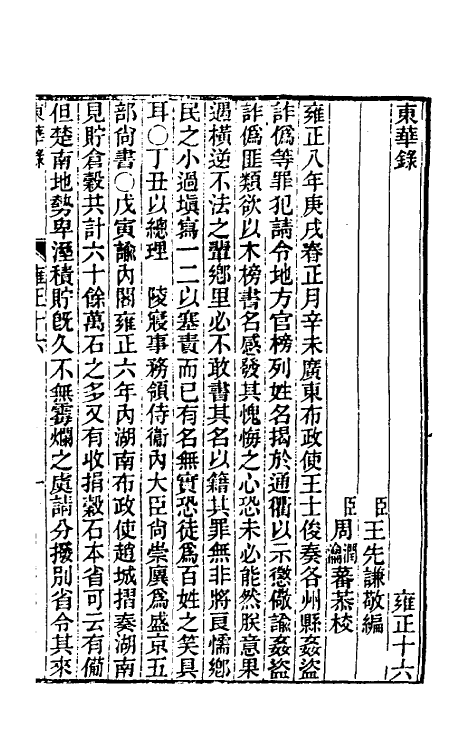 東華錄　雍正十六
臣王先謙敬編
臣周潤蕃瀹蕃恭校
雍正八年庚戌春正月辛未廣東布政使王士俊奏各州縣姦盜
詐僞等罪犯請令地方官榜列姓名揭於通衢以示懲儆諭姦盜
詐僞匪類欲以木榜書名感發其愧悔之心恐未必能然朕意果
遇橫逆不法之輩鄉里必不敢書其名以籍其罪無非將良懦鄉
民之小過塡寫一二以塞責而已有名無實恐徒爲百姓之笑具
耳○丁丑以總理　陵寢事務領侍衞內大臣尚崇廙爲盛京五
部尚書○戊寅諭內閣雍正六年內湖南布政使趙城摺奏湖南
見貯倉穀共計六十餘萬石之多又有收捐穀石本省可云有備
但楚南地勢卑溼積貯旣久不無霉爛之虞請分撥別省令其來
東華錄　雍正十六　一